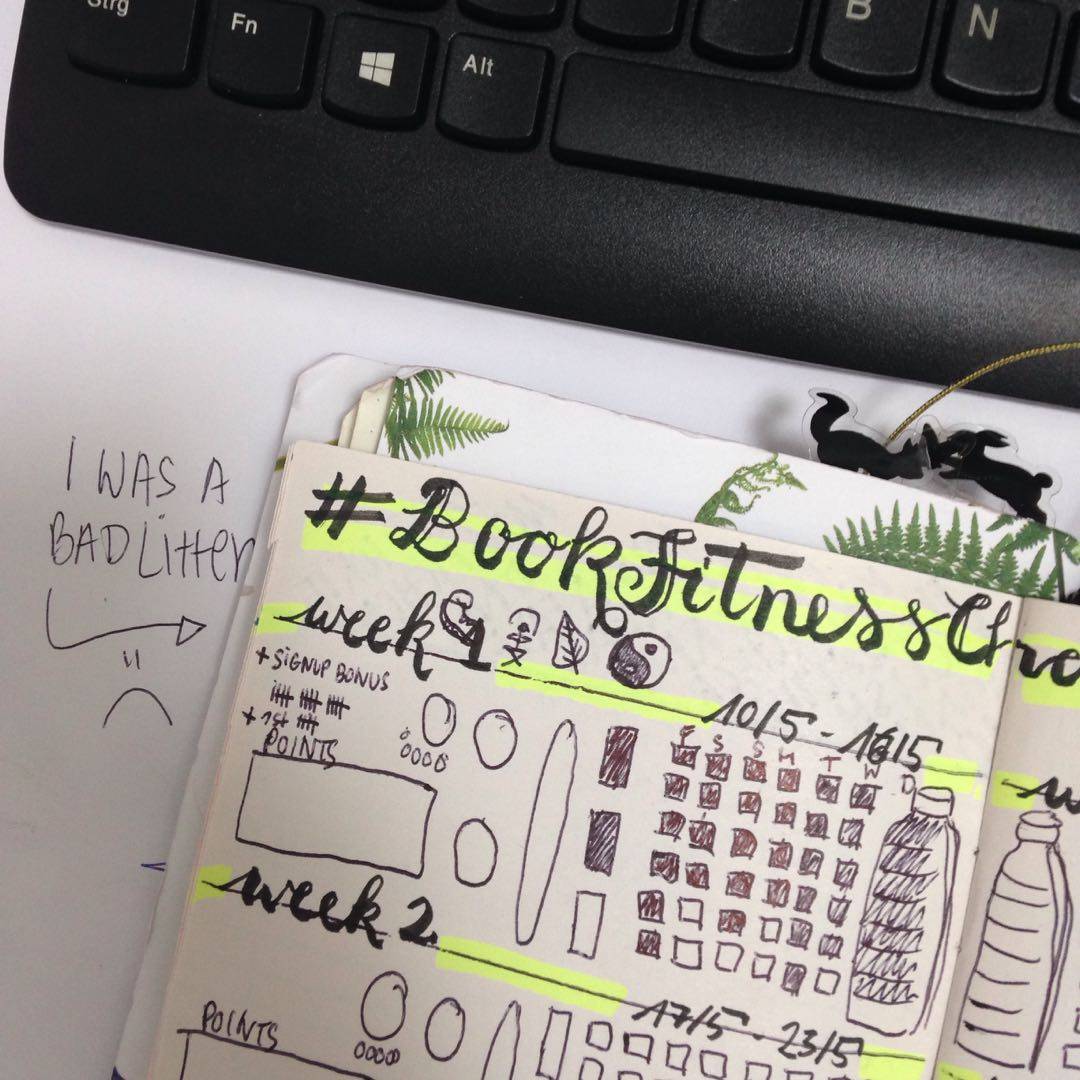 Strg
Fn
Alt
B
N
I WAS A
BAD Litter
#BookFitnessCh
week 1
+ SIGNUP BONUS
+ 1st
POINTS
10/5 - 16/5
F S S M T W
D
week 2
17/5 - 23/5
POINTS